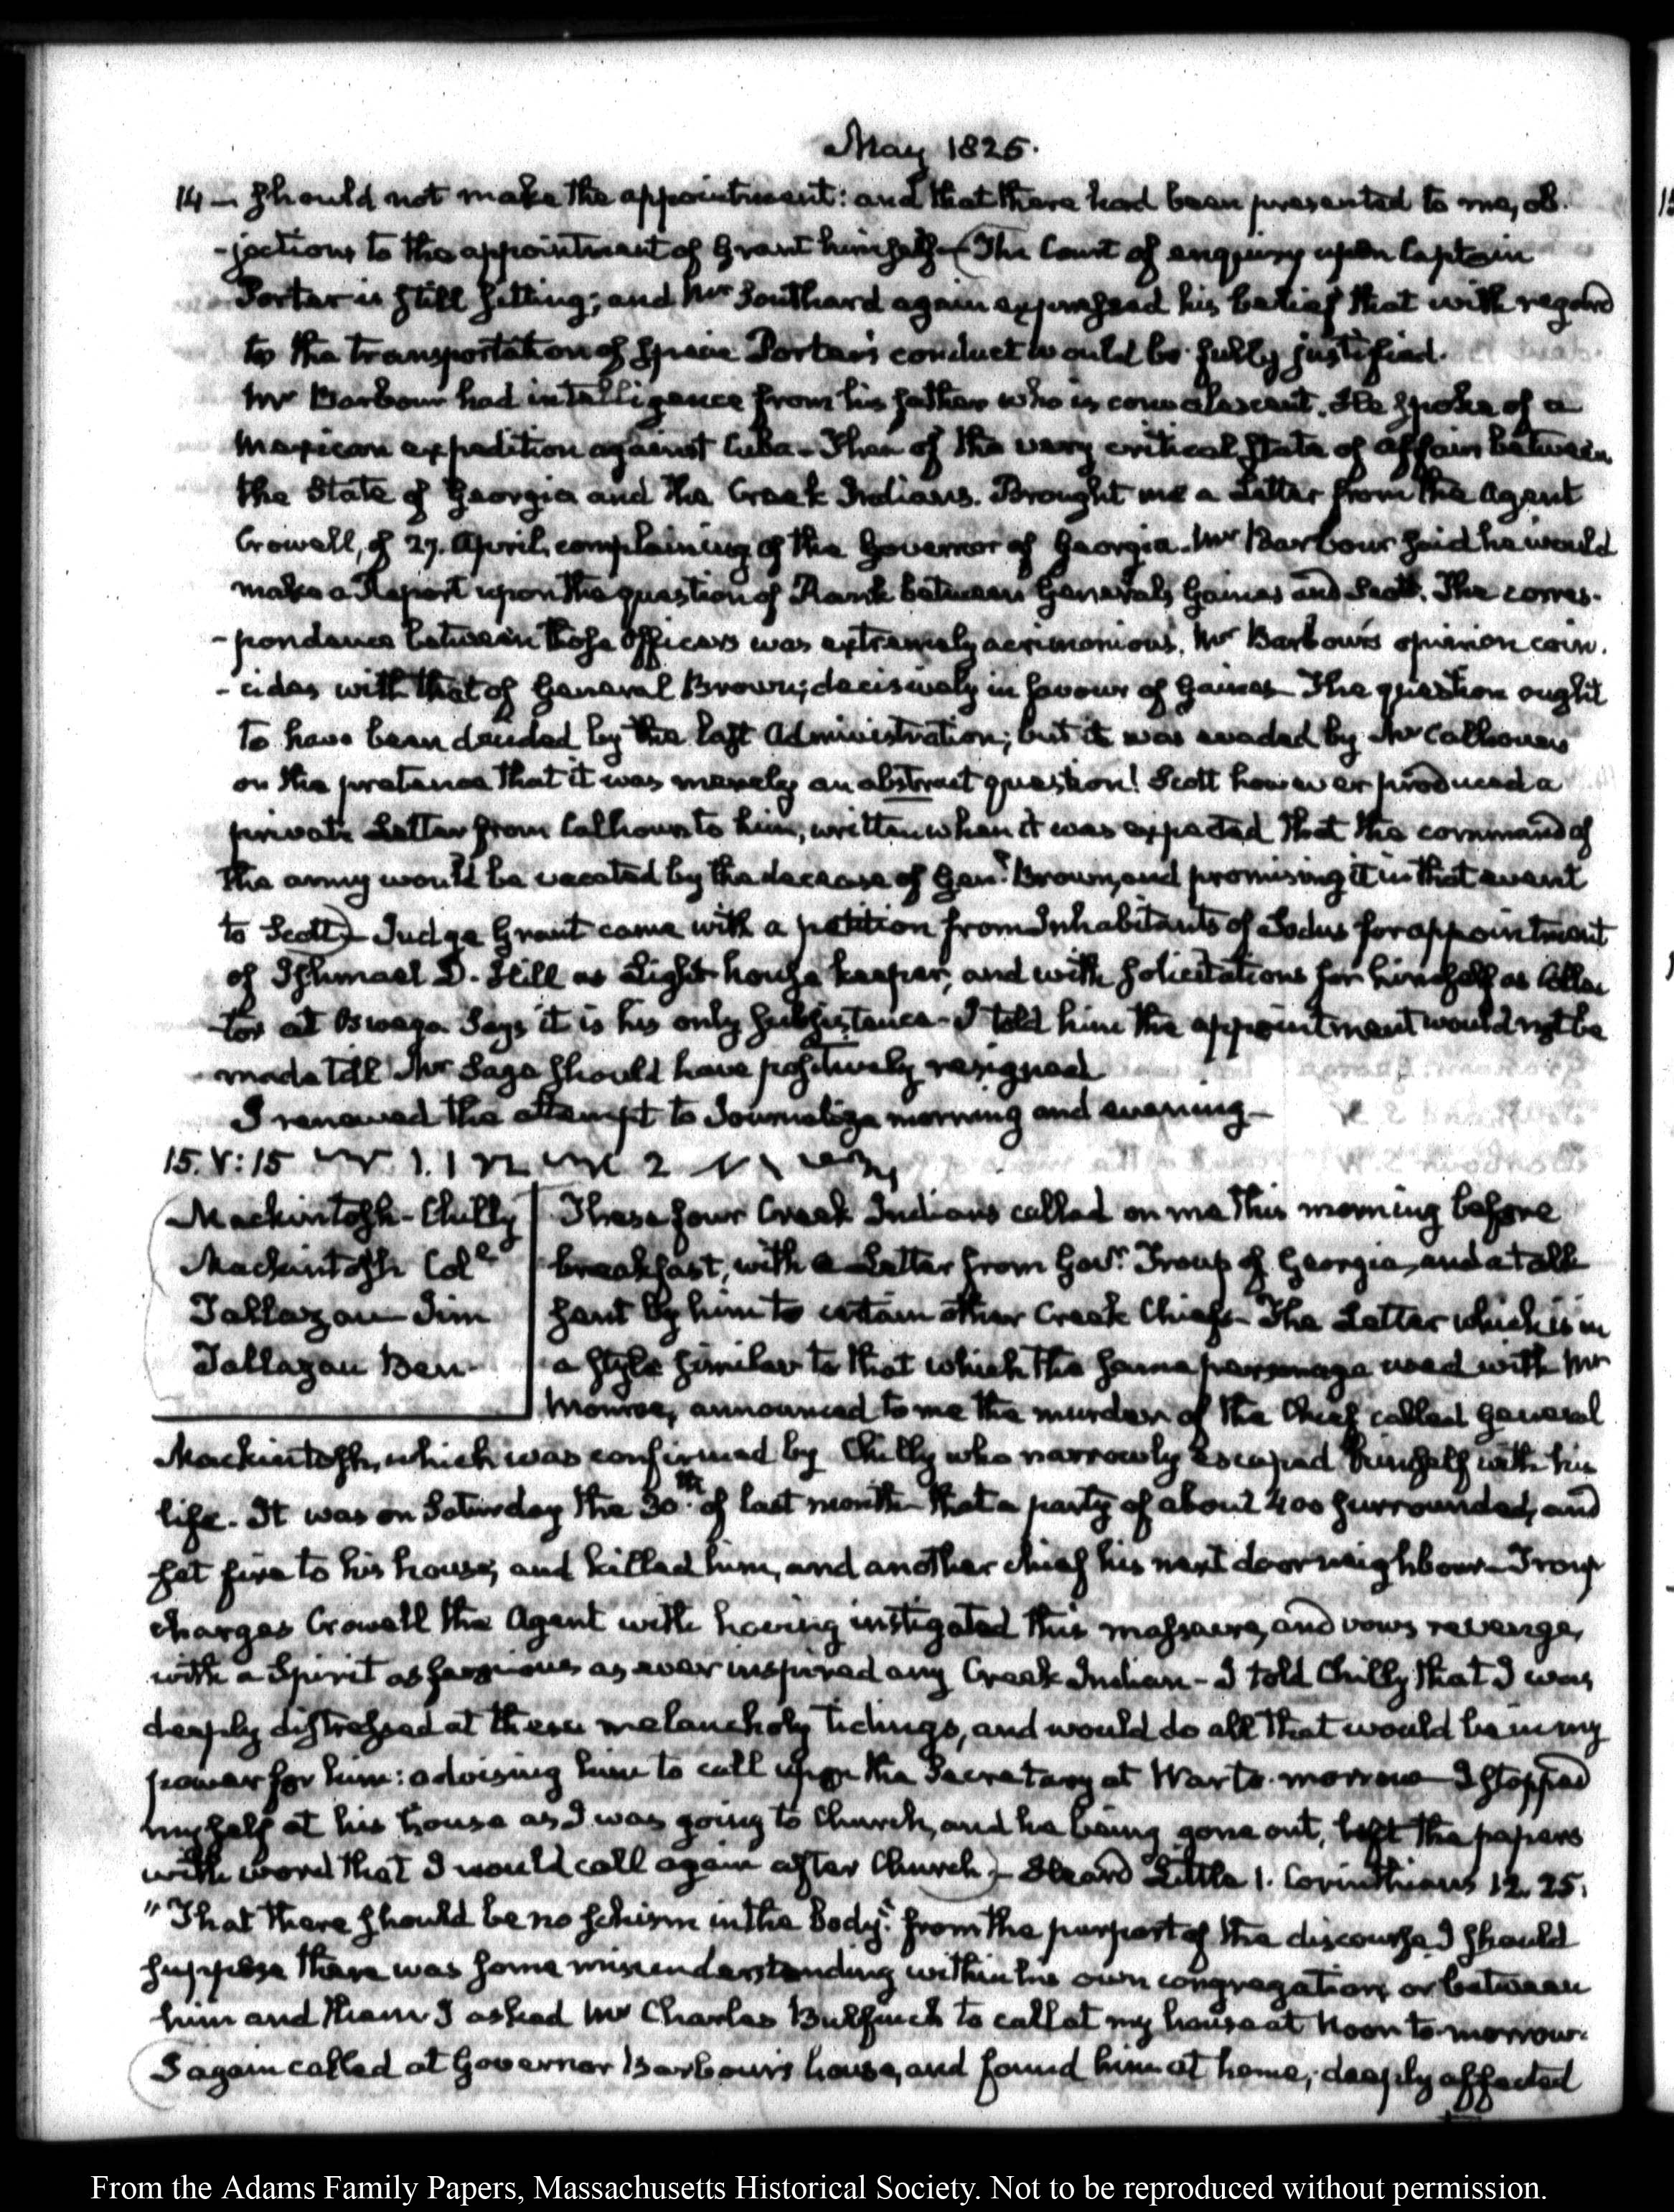 May 1825.
14 — should not make the appointment: and that there had been presented to me, ob-
-jections to the appointment of Grant himself — (The Court of enquiry upon Captain
Porter is still sitting; and Mr Southard again expressed his belief that with regard
to the transportation of specie Porter's conduct would be fully justified.
Mr Barbour had intelligence from his father who is convalescent. He spoke of a
Mexican expedition against Cuba — Then of the very critical state of affairs between
the State of Georgia and the Creek Indians. Brought me a Letter from the Agent
Crowell, of 27. April, complaining of the Governor of Georgia. Mr Barbour said he would
make a Report upon the question of Rank between Generals Gaines and Scott. The corres-
-pondence between those Officers was extremely acrimonious. Mr Barbour's opinion coin-
-cides with that of General Brown; decisively in favour of Gaines — The question ought
to have been decided by the last Administration; but it was evaded by Mr Calhoun
on the pretence that it was merely an abstract question! Scott however produced a
private Letter from Calhoun to him, written when it was expected that the command of
the army would be vacated by the decease of Genl. Brown, and promising it in that event
to Scott) — Judge Grant came with a petition from Inhabitants of Sodus for appointment
of Ishmael D. Hill as Light-house keeper, and with solicitations for himself as Collec
-tor at Oswego. Says it is his only subsistence — I told him the appointment would not be
made till Mr Sage should have positively resigned
I renewed the attempt to Journalize morning and evening —
15. V: 15
Mackintosh - Chilly
Mackintosh Cole
Tallazau Jim
Tallazau Ben
These four Creek Indians called on me this morning before
breakfast, with a Letter from Govr. Troup of Georgia, and a talk
sent by him to certain other Creek Chiefs — The Letter which is in
a style similar to that which the same personage used with Mr
Monroe, announced to me the murder of the Chief called General
Mackintosh, which was confirmed by Chilly who narrowly escaped himself with his
life. It was on Saturday the 30th. of last month that a party of about 400 surrounded, and
set fire to his house, and killed him, and another chief his next door neighbour — Troup
charges Crowell the Agent with having instigated this massacre, and vows revenge,
with a Spirit as ferocious as ever inspired any Creek Indian — I told Chilly that I was
deeply distressed at these melancholy tidings, and would do all that would be in my
power for him: advising him to call upon the Secretary at War to-morrow — I stopped
myself at his house as I was going to Church, and he being gone out, left the papers
with word that I would call again after Church) — Heard Little 1. Corinthians 12. 25.
"That there should be no schism in the Body." from the purport of the discourse I should
suppose there was some misunderstanding within his own congregation, or between
him and them — I asked Mr Charles Bulfinch to call at my house at Noon to-morrow.
(I again called at Governor Barbour's house, and found him at home; deeply affected
From the Adams Family Papers, Massachusetts Historical Society. Not to be reproduced without permission.